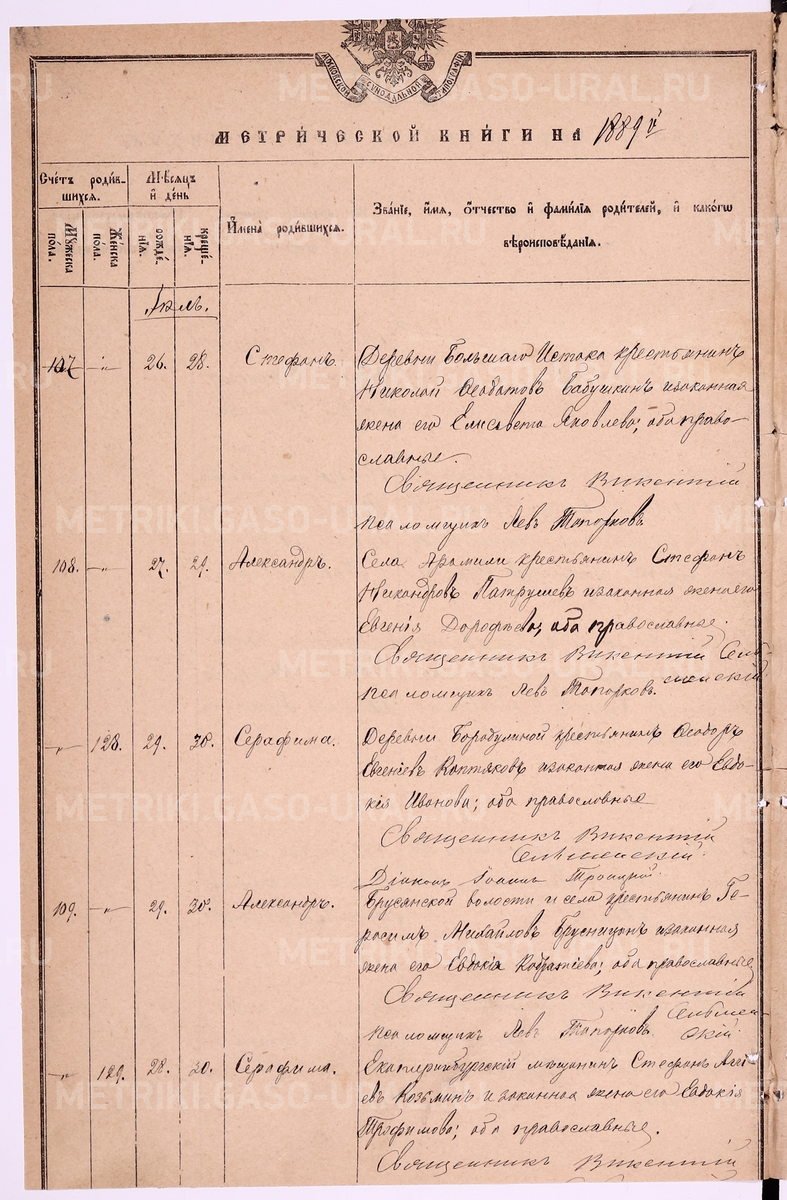 МОСКОВСКОЙ СѴНОДАЛЬНОЙ ТИПОГРАФІИ
МЕТРИЧЕСКОЙ КНИГИ НА 1889 й
Счетъ родившихся.
Мѣсяцъ и день
Имена родившихся.
Званіе, имя, отчество и фамилія родителей, и какогѡ вѣроисповѣданія.
Мужеска пола.
Женска пола.
рожденія.
крещенія.
107 -"- 26. 28. Стефанъ.
Деревни Большаго Истока крестьянинъ
Николай Бабушкинъ и законная
жена его Елисавета Яковлева; оба право-
славные.
Священникъ Викентій
Псаломщикъ Левъ Топорковъ
108. -"- 27. 29. Александръ.
Села Арамили крестьянинъ Стефанъ
Никандровъ Патрушевъ и законная жена его
Евгенія Дорофѣева; оба православные.
Священникъ Викентій
Псаломщикъ Левъ Топорковъ.
-"- 128. 29. 30. Серафима.
Деревни Бородулиной крестьянинъ Ѳеодоръ
Евгеніевъ Коптяковъ и законная жена его Евдо-
кія Иванова; оба православные
Священникъ Викентій
Діаконъ Іоаннъ Троицкій.
109. -"- 29. 30. Александръ.
Брусянской волости и села крестьянинъ Ге-
расимъ Михайловъ Брусницынъ и законная
жена его Евдокія; оба православные
Священникъ Викентій
Псаломщикъ Левъ Топорковъ.
-"- 129. 28. 30. Серафима.
Екатеринбургскій мѣщанинъ Стефанъ Алексі-
евъ Козьминъ и законная жена его Евдокія
Трофимова; оба православные.
Священникъ Викентій
METRIKI.GASO-URAL.RU